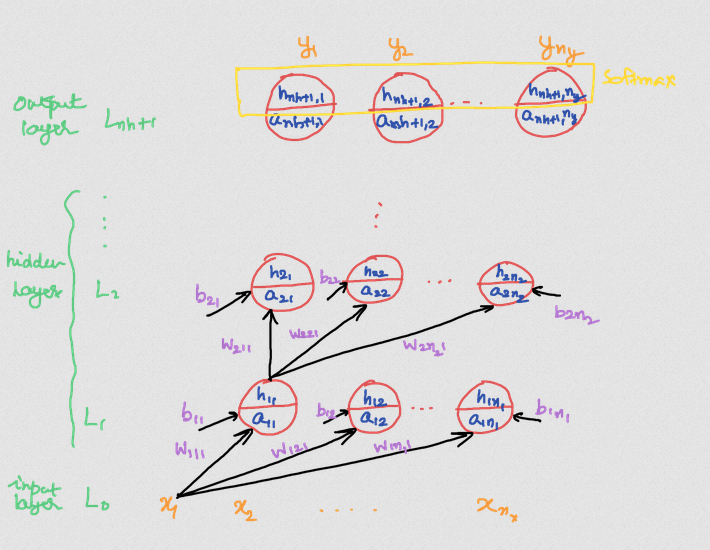 y₁ y₂ yₙy
softmax
output layer Lnh+1
hnh+1,1 hnh+1,2 .... hnh+1,ny
anh+1,1 anh+1,2 anh+1,ny
hidden layer
L₂
b₂₁ h₂₁ b₂₂ h₂₂ .... h₂n₂
a₂₁ a₂₂ a₂n₂ b₂n₂
W₂₁₁ W₂₂₁ W₂n₂1
L₁
b₁₁ h₁₁ b₁₂ h₁₂ .... h₁n₁ b₁n₁
a₁₁ a₁₂ a₁n₁
W₁₁₁ W₁₂₁ W₁n₁1
input layer L₀
x₁ x₂ ..... xnx